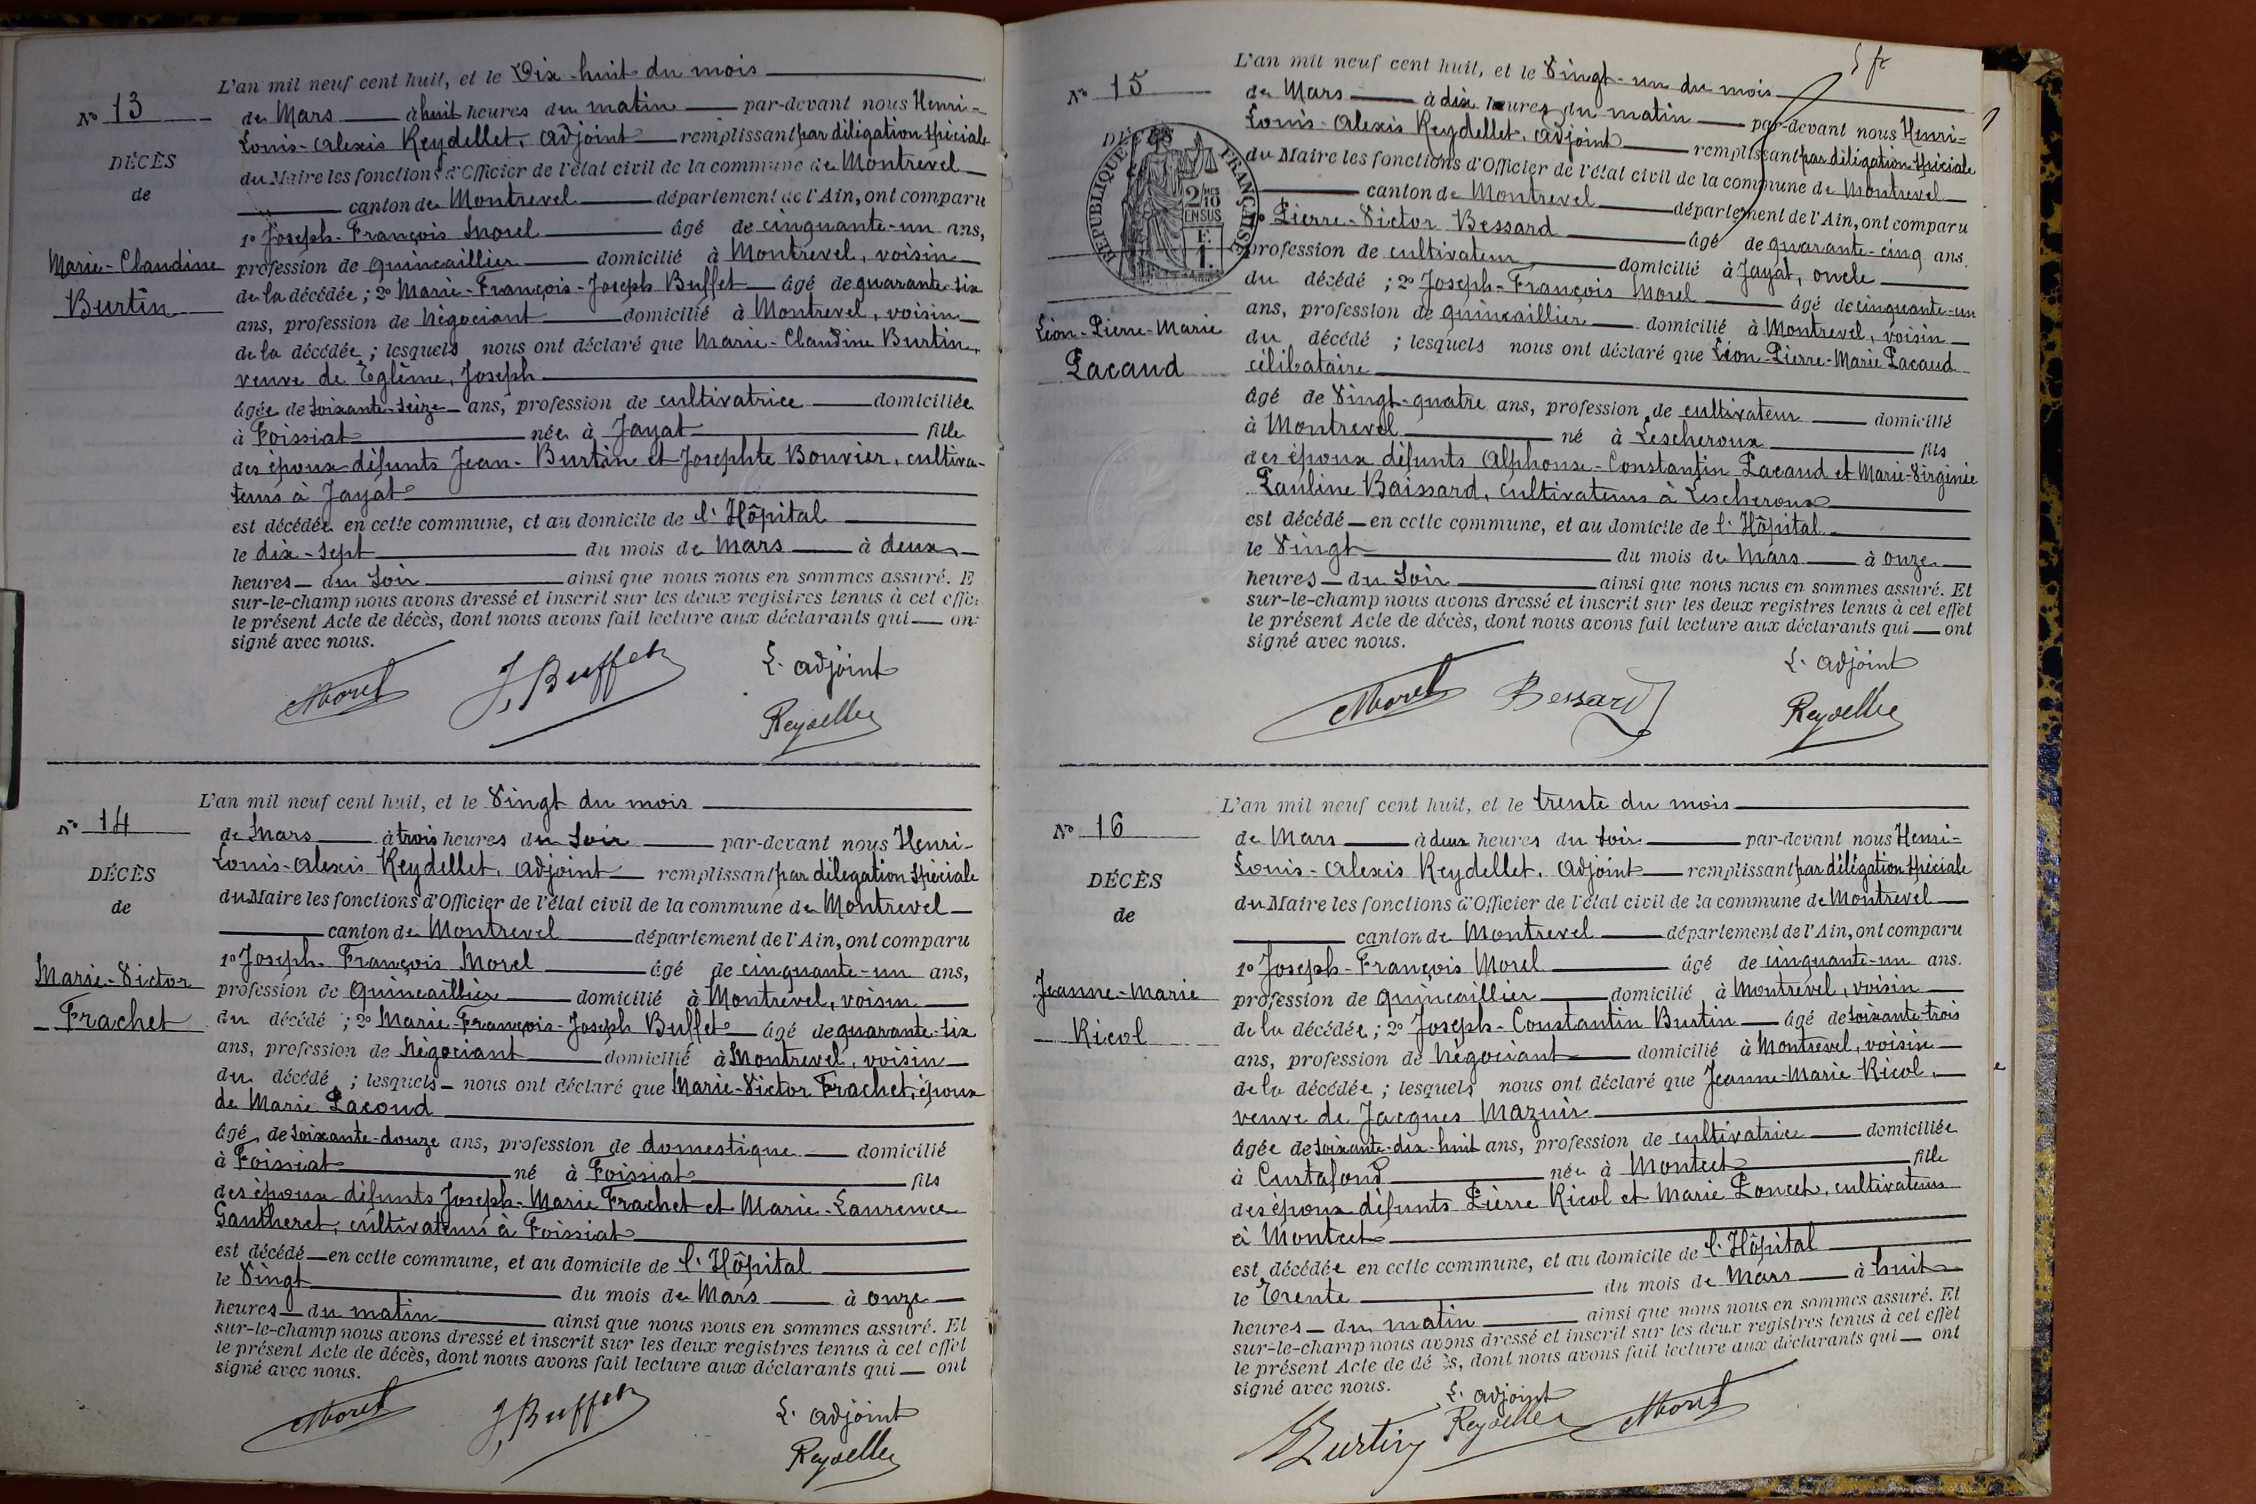 L'an mil neuf cent huit, et le Dix-huit du mois
N° 13
de Mars à huit heures du matin par-devant nous Henri-
Louis-Alexis Reydellet, adjoint remplissant par délégation spéciale
DÉCÈS
du Maire les fonctions d'Officier de l'état civil de la commune de Montrevel
de
canton de Montrevel département de l'Ain, ont comparu
1° Joseph-François Morel âgé de cinquante-un ans,
Marie-Claudine
Burtin
profession de quincaillier domicilié à Montrevel, voisin
de la décédée ; 2° Marie-François-Joseph Buffet âgé de quarante-six
ans, profession de négociant domicilié à Montrevel, voisin
de la décédée ; lesquels nous ont déclaré que Marie-Claudine Burtin,
veuve de Eglème, Joseph
âgée de soixante-seize ans, profession de cultivatrice domiciliée
à Foissiat née à Jayat fille
des époux défunts Jean-Burtin et Josephte Bouvier, cultiva-
teurs à Jayat
est décédée en cette commune, et au domicile de l'Hôpital
le dix-sept du mois de Mars à deux
heures du soir ainsi que nous nous en sommes assuré. E
sur-le-champ nous avons dressé et inscrit sur les deux registres tenus à cet effe
le présent Acte de décès, dont nous avons fait lecture aux déclarants qui on
signé avec nous.
Morel
J. Buffet
L'adjoint
Reydellet
L'an mil neuf cent huit, et le Vingt du mois
N° 14
de Mars à trois heures du soir par-devant nous Henri-
Louis-Alexis Reydellet, adjoint remplissant par délégation spéciale
DÉCÈS
du Maire les fonctions d'Officier de l'état civil de la commune de Montrevel
de
canton de Montrevel département de l'Ain, ont comparu
1° Joseph-François Morel âgé de cinquante-un ans,
Marie-Victor
Frachet
profession de quincaillier domicilié à Montrevel, voisin
du décédé ; 2° Marie-François-Joseph Buffet âgé de quarante-six
ans, profession de négociant domicilié à Montrevel, voisin
du décédé ; lesquels nous ont déclaré que Marie-Victor Frachet, époux
de Marie Pacoud
âgé de soixante-douze ans, profession de domestique domicilié
à Foissiat né à Foissiat fils
des époux défunts Joseph-Marie Frachet et Marie-Laurence
Gautheret, cultivateurs à Foissiat
est décédé en cette commune, et au domicile de l'Hôpital
le Vingt du mois de Mars à onze
heures du matin ainsi que nous nous en sommes assuré. Et
sur-le-champ nous avons dressé et inscrit sur les deux registres tenus à cet effet
le présent Acte de décès, dont nous avons fait lecture aux déclarants qui ont
signé avec nous.
Morel
J. Buffet
L'adjoint
Reydellet
L'an mil neuf cent huit, et le Vingt-un du mois
N° 15
de Mars à dix heures du matin par-devant nous Henri-
Louis-Alexis Reydellet, adjoint remplissant par délégation spéciale
DÉCÈS
du Maire les fonctions d'Officier de l'état civil de la commune de Montrevel
RÉPUBLIQUE FRANÇAISE
2/10 EN SUS
F. 1.
canton de Montrevel département de l'Ain, ont comparu
1° Pierre-Victor Bessard âgé de quarante-cinq ans.
profession de cultivateur domicilié à Jayat, oncle
Léon-Pierre-Marie
Pacaud
du décédé ; 2° Joseph-François Morel âgé de cinquante-un
ans, profession de quincaillier domicilié à Montrevel, voisin
du décédé ; lesquels nous ont déclaré que Léon-Pierre-Marie Pacaud
célibataire
âgé de Vingt-quatre ans, profession de cultivateur domicilié
à Montrevel né à Lescheroux fils
des époux défunts Alphonse-Constantin Pacaud et Marie-Virginie
Pauline Baissard, cultivateurs à Lescheroux
est décédé en cette commune, et au domicile de l'Hôpital
le Vingt du mois de Mars à onze
heures du soir ainsi que nous nous en sommes assuré. Et
sur-le-champ nous avons dressé et inscrit sur les deux registres tenus à cet effet
le présent Acte de décès, dont nous avons fait lecture aux déclarants qui ont
signé avec nous.
Morel
Bessard
L'adjoint
Reydellet
L'an mil neuf cent huit, et le trente du mois
N° 16
de Mars à deux heures du soir par-devant nous Henri-
Louis-Alexis Reydellet, adjoint remplissant par délégation spéciale
DÉCÈS
du Maire les fonctions d'Officier de l'état civil de la commune de Montrevel
de
canton de Montrevel département de l'Ain, ont comparu
1° Joseph-François Morel âgé de cinquante-un ans.
Jeanne-Marie
Ricol
profession de quincaillier domicilié à Montrevel, voisin
de la décédée ; 2° Joseph-Constantin Burtin âgé de soixante-trois
ans, profession de négociant domicilié à Montrevel, voisin
de la décédée ; lesquels nous ont déclaré que Jeanne-Marie Ricol,
veuve de Jacques Mazuir
âgée de soixante-dix-huit ans, profession de cultivatrice domiciliée
à Curtafond née à Montcet fille
des époux défunts Pierre Ricol et Marie Poncet, cultivateurs
à Montcet
est décédée en cette commune, et au domicile de l'Hôpital
le Trente du mois de Mars à huit
heures du matin ainsi que nous nous en sommes assuré. Et
sur-le-champ nous avons dressé et inscrit sur les deux registres tenus à cet effet
le présent Acte de décès, dont nous avons fait lecture aux déclarants qui ont
signé avec nous.
L'adjoint
Burtin
Reydellet
Morel